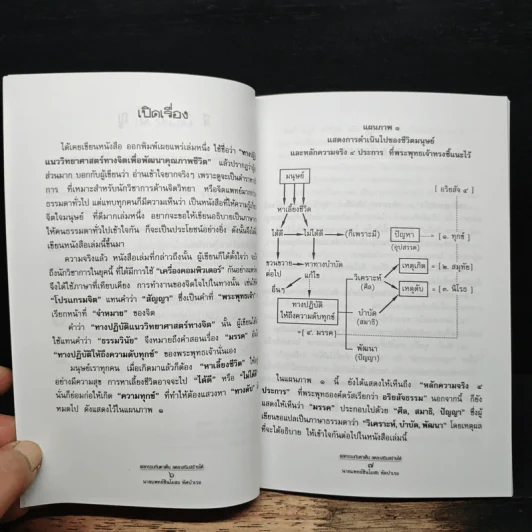 เปิดเรื่อง
ได้เคยเขียนหนังสือ ออกพิมพ์เผยแพร่เล่มหนึ่ง ใช้ชื่อว่า
แนววิทยาศาสตร์ทางจิตเพื่อพัฒนาคุณภาพชีวิต" แล้ว
ส่วนมาก บอกกับผู้เขียนว่า อ่านเข้าใจยากจริงๆ เพราะดูจะเป็นตำรา
การ ที่เหมาะสำหรับนักวิชาการด้านจิตวิทยา หรือจิตแพทย์
ธรรมดาทั่วไป แต่แทบทุกคนก็มีความเห็นว่า เป็นหนังสือที่ให้ความรู้
จิตใจมนุษย์ ที่ดีมากเล่มหนึ่ง อยากจะขอให้เขียนอธิบายเป็นภาษา
ให้คนธรรมดาทั่วไปเข้าใจกัน ก็จะเป็นประโยชน์อย่างยิ่ง ดังนั้น
เขียนหนังสือเล่มนี้ขึ้นมา
ความจริงแล้ว หนังสือเล่มที่กล่าวถึงนั้น ผู้เขียนก็ได้ตั้งใจว่า
ถึงนักวิชาการในยุคนี้ ที่ได้มีการใช้ "เครื่องคอมพิวเตอร์" กันอย่าง
จึงได้ใช้ภาษาที่เทียบเคียง การทำงานของจิตใจไปในทางนั้น เช่น
"โปรแกรมจิต" แทนคำว่า "สัญญา" ซึ่งเป็นคำที่ "พระพุทธเจ้า"
เรียกหน้าที่ "จำหมาย" ของจิต
คำว่า "ทางปฏิบัติแนววิทยาศาสตร์ทางจิต" นั้น ผู้เขียน
ใช้แทนคำว่า "ธรรมวินัย" จึงหมายถึงคำสอนเรื่อง "มรรค"
"ทางปฏิบัติให้ถึงความดับทุกข์" ของพระพุทธเจ้านั่นเอง
มนุษย์เราทุกคน เมื่อเกิดมาแล้วก็ต้อง "หาเลี้ยงชีวิต" ให้
อย่างมีความสุข การหาเลี้ยงชีวิตอาจจะไป "ได้ดี" หรือ "ไม่ได้ดี"
นั่นก็ย่อมก่อให้เกิด "ความทุกข์" ที่ทำให้ต้องแสวงหา "ทางดับ"
หมดไป ดังแสดงไว้ในแผนภาพ ๑
๖
แผนภาพ ๑
แสดงการดำเนินไปของชีวิตมนุษย์
และหลักความจริง ๔ ประการ ที่พระพุทธเจ้าทรงชี้แนะไว้
มนุษย์
[ อริยสัจ ๔ ]
หาเลี้ยงชีวิต
ได้ดี
ไม่ได้ดี
(ก็เพราะมี)
ปัญหา
(อุปสรรค)
= [ ๑. ทุกข์ ]
ขวนขวาย
ต่อไป
หาทางบำบัด
แก้ไข
วิเคราะห์
(ศีล)
เหตุเกิด
= [ ๒. สมุทัย ]
อื่นๆ
เหตุดับ
= [ ๓. นิโรธ ]
ทางปฏิบัติ
ให้ถึงความดับทุกข์
บำบัด
(สมาธิ)
= [ ๔. มรรค ]
พัฒนา
(ปัญญา)
ในแผนภาพ ๑ นี้ ยังได้แสดงให้เห็นถึง "หลักความจริง ๔
ประการ" ที่พระพุทธองค์ตรัสเรียกว่า อริยสัจธรรม นอกจากนี้ ก็ยัง
แสดงให้เห็นว่า "มรรค" ประกอบไปด้วย "ศีล, สมาธิ, ปัญญา" ซึ่งผู้
เขียนขอแปลเป็นภาษาธรรมดาว่า "วิเคราะห์, บำบัด, พัฒนา" โดยเหตุผล
ที่จะได้อธิบาย ให้เข้าใจกันต่อไปในหนังสือเล่มนี้
๗